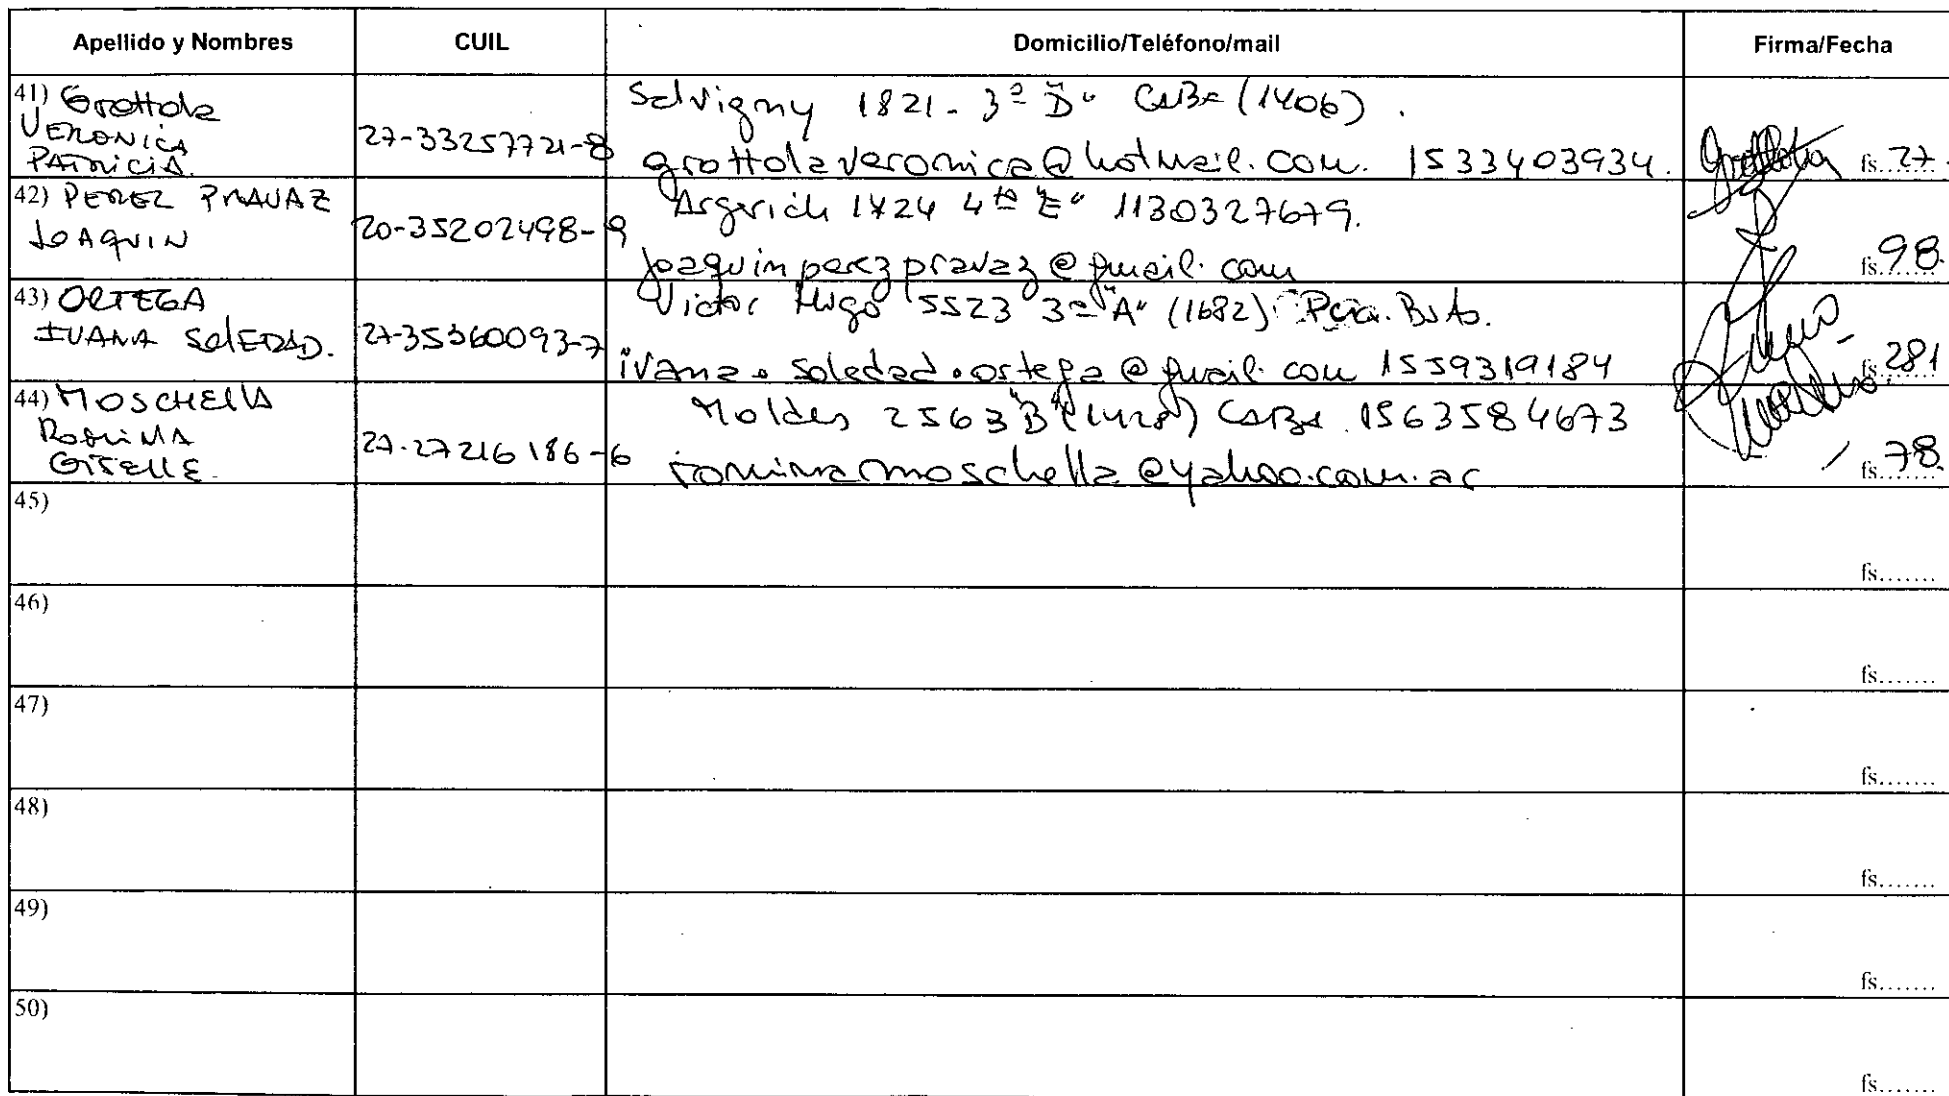 Apellido y Nombres CUIL Domicilio/Teléfono/mail Firma/Fecha
41) Grottola
VERONICA
PATRICIA.
27-33257721-8
Salvigny 1821 - 3º "D" CABA (1406).
grottolaveronica@hotmail.com. 1533403934.
fs. 27.
42) PEREZ PRAVAZ
JOAQUIN
20-35202498-9
Argerich 1424 4to "E" 1130327679.
joaquinperezpravaz@gmail.com
fs. 98.
43) ORTEGA
IVANA SOLEDAD.
27-35360093-7
Victor Hugo 5523 3º "A" (1682) Pcia. Bs As.
ivana.soledad.ortega@gmail.com 1559319184
fs. 281
44) MOSCHELLA
ROMINA
GISELLE.
27-27216186-6
Moldes 2563 "B" (1428) CABA. 1563584673
rominamoschella@yahoo.com.ar
fs. 78.
45)
fs.......
46)
fs.......
47)
fs.......
48)
fs.......
49)
fs.......
50)
fs.......